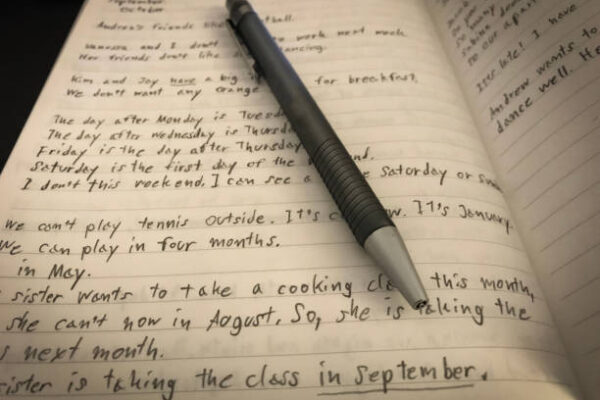 September
October
Andrea's friends like tball.
Vanessa and I don't to work next week
Her friends don't like dancing.
Kim and Joy have a big for breakfast.
We don't want any orange
The day after Monday is Tuesd
The day after Wednesday is Thursd
Friday is the day after Thursday
Saturday is the first day of the nd.
I don't this weekend. I can see a Saturday or Sun
We can't play tennis outside. It's c w. It's January.
We can play in four months.
in May.
sister wants to take a cooking cla this month,
she can't now in August. So, she is taking the
s next month.
sister is taking the class in September.
so many
to our apart
It's late! I have
Andrew wants to
dance well. He